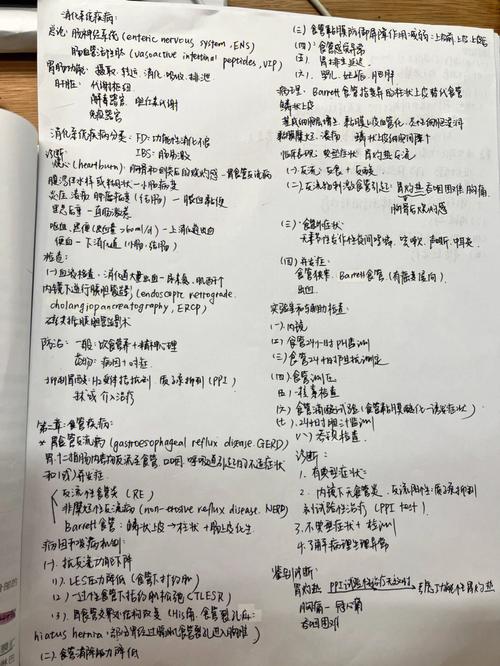 消化系统疾病:
总论: 肠神经系统 (enteric nervous system, ENS)
脑血管活性肽 (vasoactive intestinal peptides, VIP)
胃肠的功能: 摄取、转运、消化、吸收、排泄
肝脏: 代谢枢纽
解毒器官、胆红素代谢
免疫器官
消化系统疾病分类: FD: 功能性消化不良
IBS: 肠易激
诊断:
烧心 (heartburn): 胸骨和剑突后的烧灼感 — 胃食管反流病
腹泻伴水样或糊状 — 小肠病变
炎症、溃疡、肿瘤 (结肠) — 脓血黏便
里急后重 — 直肠激惹
呕血、黑便 (出血 >60ml/d) — 上消化道出血
便血 — 下消化道 (小肠、结肠)
检查:
内镜下逆行胰胆管造影 (endoscopic retrograde
cholangiopancreatography, ERCP)
防治: 一般: 饮食营养 + 精神心理
药物: 病因 + 对症
抑制胃酸: H₂受体拮抗剂、质子泵抑制 (PPI)
手术或介入治疗
第二章: 食管疾病:
* 胃食管反流病 (gastroesophageal reflux disease, GERD)
胃、十二指肠内容物反流至食管、口咽、呼吸道引起的不适症状
和(或)并发症
反流性食管炎 (RE)
非糜烂性反流病 (non-erosive reflux disease, NERD)
Barrett食管: 鳞状上皮→柱状 + 肠上皮化生
病因和发病机制:
(一). 抗反流功能下降
1). LES压力降低 (食管下括约肌)
2). 一过性食管下括约肌松弛 (TLESR)
3). 胃食管交界处结构改变 (His角、食管裂孔疝:
hiatus hernia, 部分胃经过膈肌食管裂孔进入胸腔)
(二). 食管清除能力降低
(三) 食管黏膜防御屏障作用减弱: 上皮前、上皮、上皮后
(四) 食管感觉异常
(五). 胃排空延迟
(六). 婴儿、妊娠、肥胖
病理: Barrett食管指复层的柱状上皮替代食管
鳞状上皮
临床表现: 典型症状 胃灼热、反流
(一). 反流: 反食 + 反酸
(二). 反流物刺激食管引起: 胃灼热、吞咽困难、胸痛
胸骨后烧灼感
(三). 食管外症状
(四) 并发症:
食管狭窄、Barrett食管 (有癌变倾向)
出血
实验室和辅助检查:
(一). 内镜
(二) 食管24小时PH监测
(三) 食管24h阻抗测定
(四). 食管测压
(六) 食管滴酸试验 (食管黏膜酸化—诱发症状)
诊断:
1. 有典型症状:
2. 内镜下无食管炎、反流阳性: 质子泵抑制
剂试验性治疗 (PPI test)
3. 不典型症状 + 检测
4. 了解病理生理异常
鉴别诊断:
胃灼热 PPI试验性治疗无效时 考虑功能性胃灼热
胸痛 — 冠心病
吞咽困难